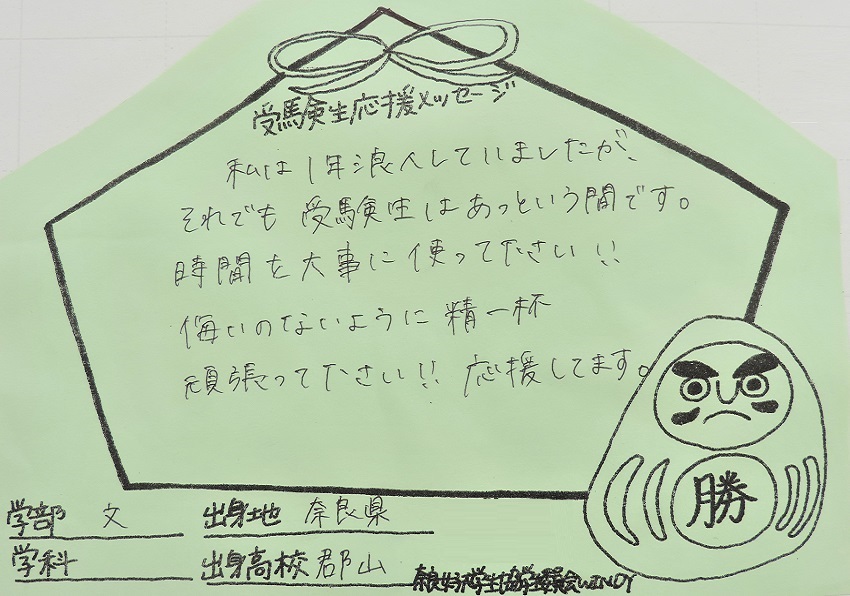 受験生応援メッセージ
私は1年浪人していましたが、
それでも受験生はあっという間です。
時間を大事に使ってください!!
悔いのないように精一杯
頑張ってください!! 応援してます。
勝
学部 文 出身地 奈良県
学科 出身高校 郡山
奈良女子大学生協学生委員会WINDY